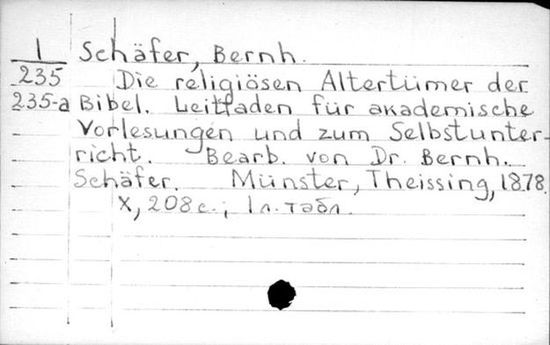 1 Schäfer, Bernh.
235 Die religiösen Altertümer der
235-a Bibel. Leitfaden für akademische
Vorlesungen und zum Selbstunter-
richt. Bearb. von Dr. Bernh.
Schäfer. Münster, Theissing, 1878.
X, 208 с.; 1 л. табл.